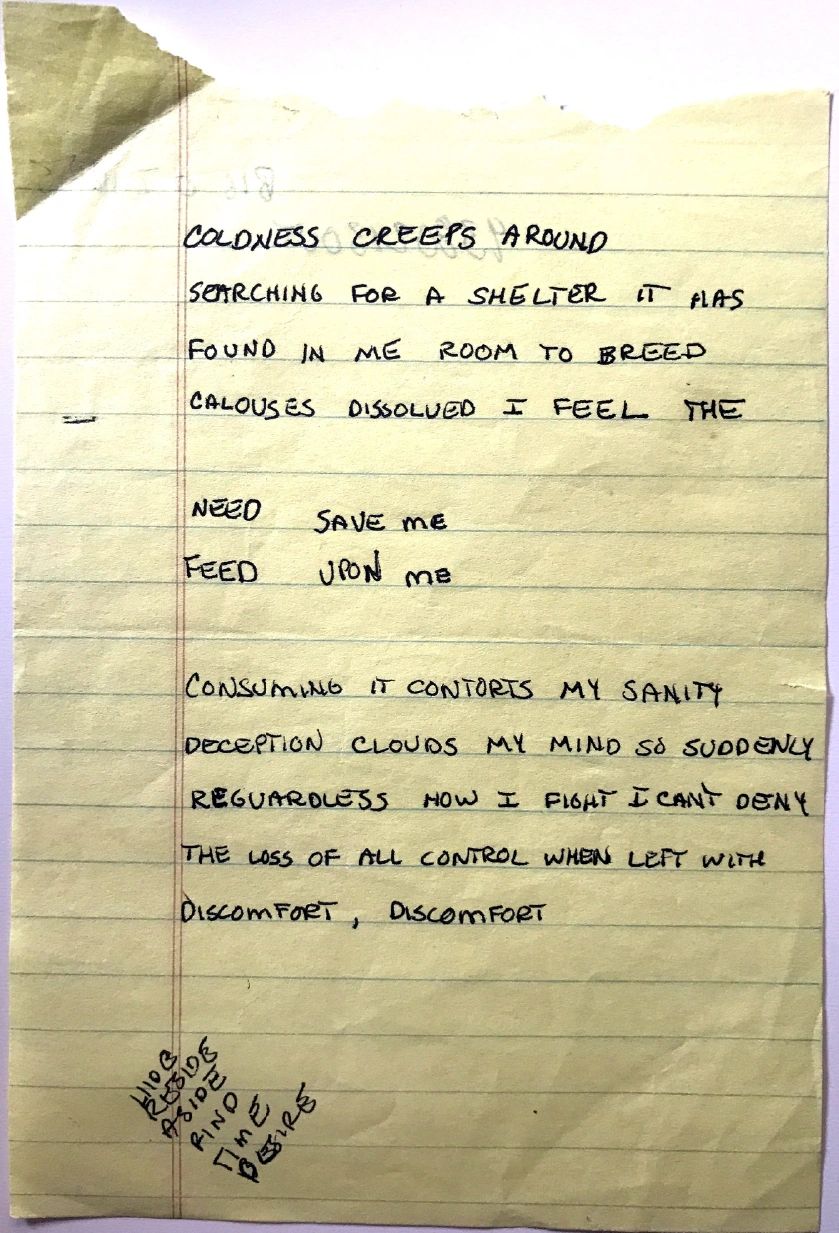 COLDNESS CREEPS AROUND
SEARCHING FOR A SHELTER IT HAS
FOUND IN ME ROOM TO BREED
CALOUSES DISSOLUED I FEEL THE
NEED SAVE ME
FEED UPON ME
CONSUMING IT CONTORTS MY SANITY
DECEPTION CLOUDS MY MIND SO SUDDENLY
REGUARDLESS HOW I FIGHT I CAN'T DENY
THE LOSS OF ALL CONTROL WHEN LEFT WITH
DISCOMFORT, DISCOMFORT
HIDE
RESIDE
ASIDE
FIND
TIME
DESIRE